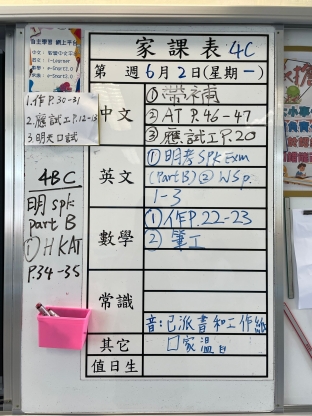 自主學習 網上平台
家課表 4C
第 週 6月2日(星期一)
中文
①帶補
②AT P.46-47
③應試工P.20
英文
①明考SPK Exam
(Part B) ② WS p.
1-3
數學
①作P.22-23
②筆工
常識
音:已派書和工作紙
其它
口家溫日
值日生
1.作P.30-31
2.應試工P.12-13
③明天口試
4BC
明 spk
part B
① H KAT
P.34-35